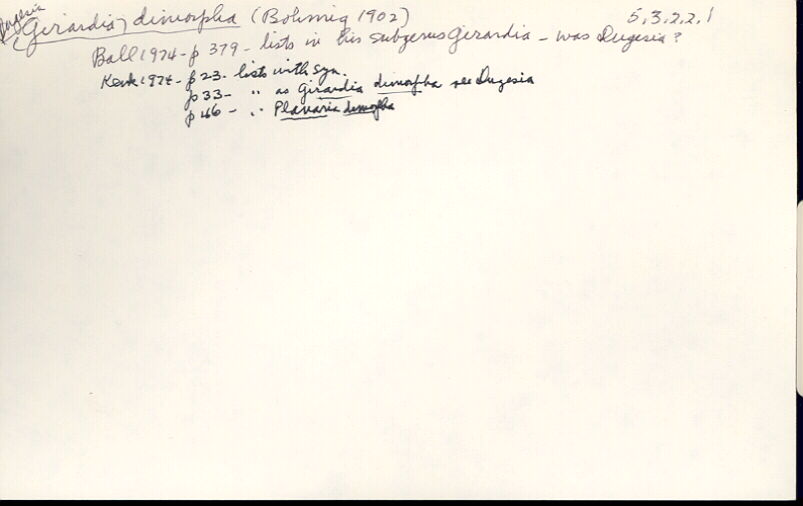 Dugesia
(Girardia) dimorpha (Böhmig 1902) 5,3,2,2,1
Ball 1974 - p 379 - lists in his subgenus Girardia - was Dugesia?
Kenk 1974 - p 23 - lists with syn.
p 33 - " as Girardia dimorpha see Dugesia
p 46 - " Planaria dimorpha